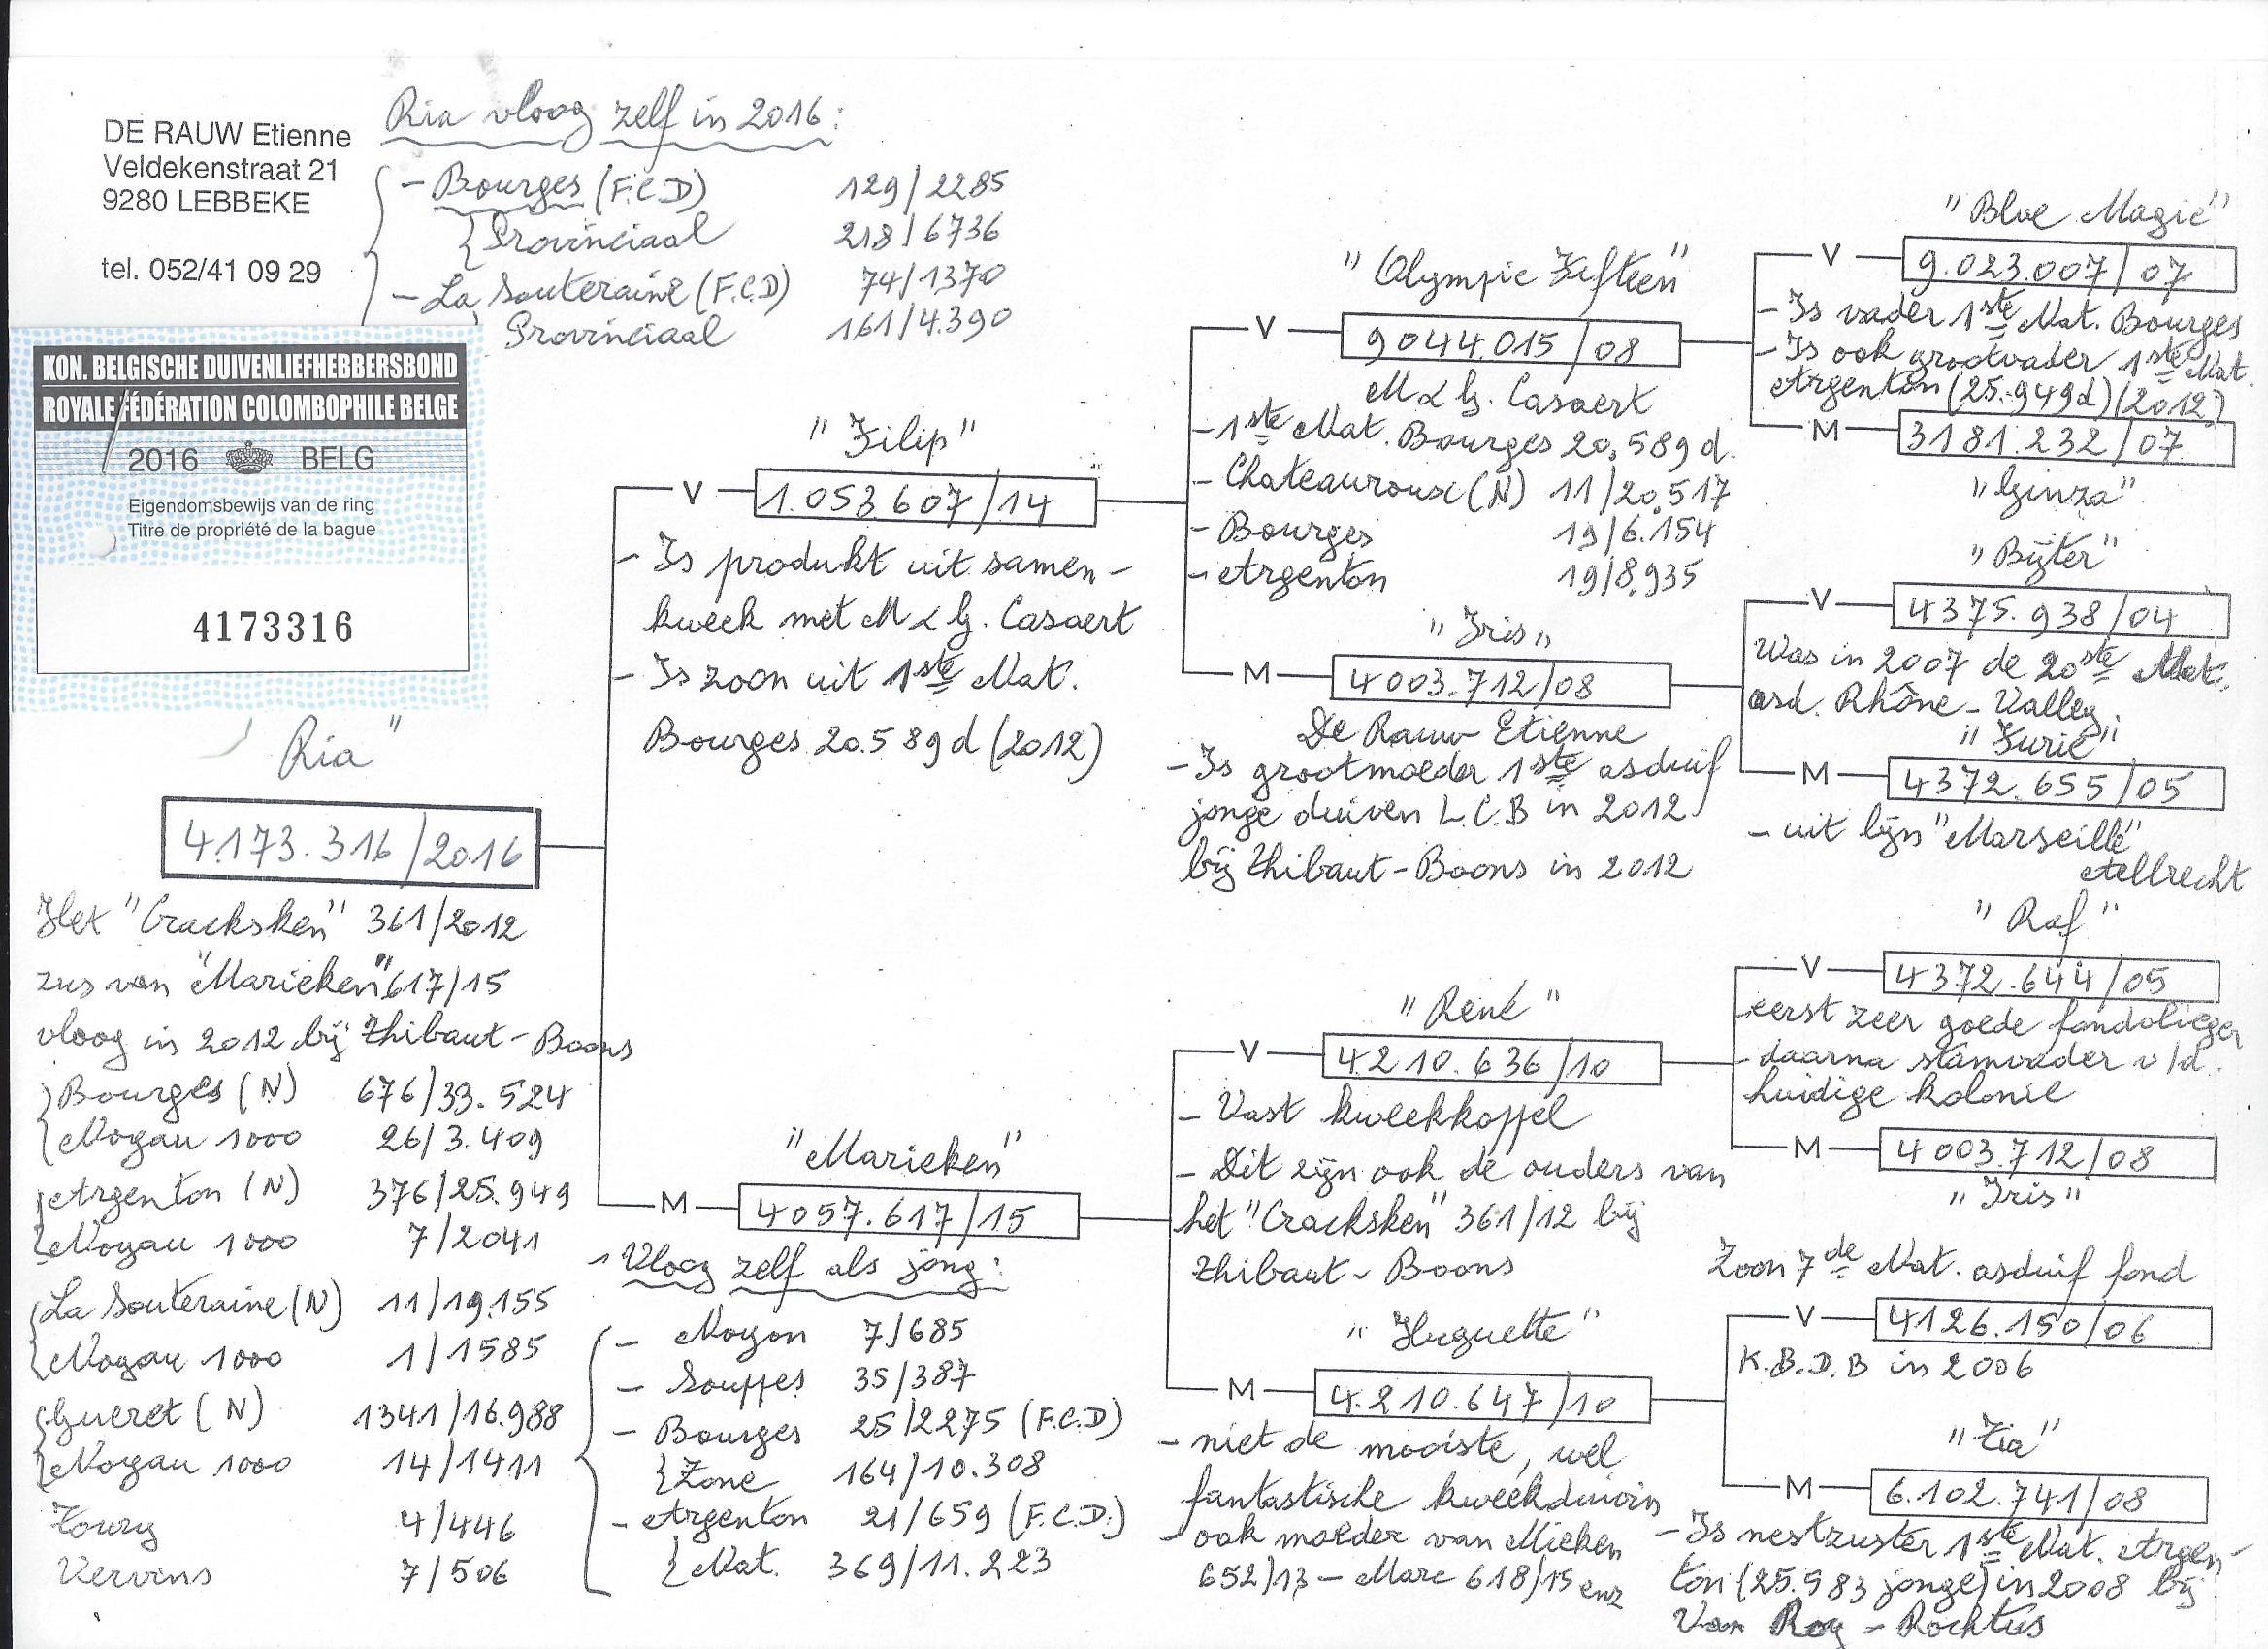 DE RAUW Etienne
Veldekenstraat 21
9280 LEBBEKE
tel. 052/41 09 29
Ria vloog zelf in 2016:
- Bourges (F.C.D) 129/2285
Provinciaal 218/6736
- La Souteraine (F.C.D) 74/1370
Provinciaal 161/4.390
KON. BELGISCHE DUIVENLIEFHEBBERSBOND
ROYALE FÉDÉRATION COLOMBOPHILE BELGE
2016 BELG
Eigendomsbewijs van de ring
Titre de propriété de la bague
4173316
"Ria"
4.173.316/2016
Het "Cracksken" 361/2012
zus van "Marieken" 617/15
vloog in 2012 bij Thibaut-Boons
Bourges (N) 676/33.524
Noyau 1000 26/3.409
Argenton (N) 376/25.949
Noyau 1000 7/2041
La Souteraine (N) 11/19.155
Noyau 1000 1/1585
Gueret (N) 1341/16.988
Noyau 1000 14/1411
Toury 4/446
Vervins 7/506
"Filip"
V 1.053.607/14
- Is produkt uit samen-
kweek met M & G. Casaert
- Is zoon uit 1ste Nat.
Bourges 20.589d (2012)
"Marieken"
M 4057.617/15
- Vloog zelf als jong:
- Noyon 7/685
- Souppes 35/387
- Bourges 25/2275 (F.C.D)
Zone 164/10.308
- Argenton 21/659 (F.C.D.)
Nat. 369/11.223
"Olympic Fifteen"
V 9044.015/08
M & G. Casaert
- 1ste Nat. Bourges 20.589 d.
- Chateauroux (N) 11/20.517
- Bourges 19/6.154
- Argenton 19/8.935
"Iris"
M 4003.712/08
De Rauw Etienne
- Is grootmoeder 1ste asduif
jonge duiven L.C.B in 2012
bij Thibaut-Boons in 2012
"René"
V 4.210.636/10
- Vast kweekkoppel
- Dit zijn ook de ouders van
het "Cracksken" 361/12 bij
Thibaut - Boons
"Huguette"
M 4.210.647/10
- niet de mooiste, wel
fantastische kweekduivin
- ook moeder van Mieken
652/13 - Marc 618/15 enz
"Blue Magic"
V 9.023.007/07
- Is vader 1ste Nat. Bourges
- Is ook grootvader 1ste Nat.
Argenton (25.949d) (2012)
M 3181.232/07
"Ginza"
"Bijter"
V 4375.938/04
Was in 2007 de 20ste Nat.
asd. Rhône-Valley.
"Furie"
M 4372.655/05
- uit lijn "Marseille"
Aelbrecht
"Raf"
V 4372.644/05
- eerst zeer goede fondvlieger
- daarna stamvader v/d.
huidige kolonie
M 4003.712/08
"Iris"
Zoon 7de Nat. asduif fond
V 4126.150/06
K.B.D.B in 2006
"Tia"
M 6.102.741/08
- Is nestzuster 1ste Nat. Argen-
ton (25.983 jonge) in 2008 bij
Van Roy - Rocktus